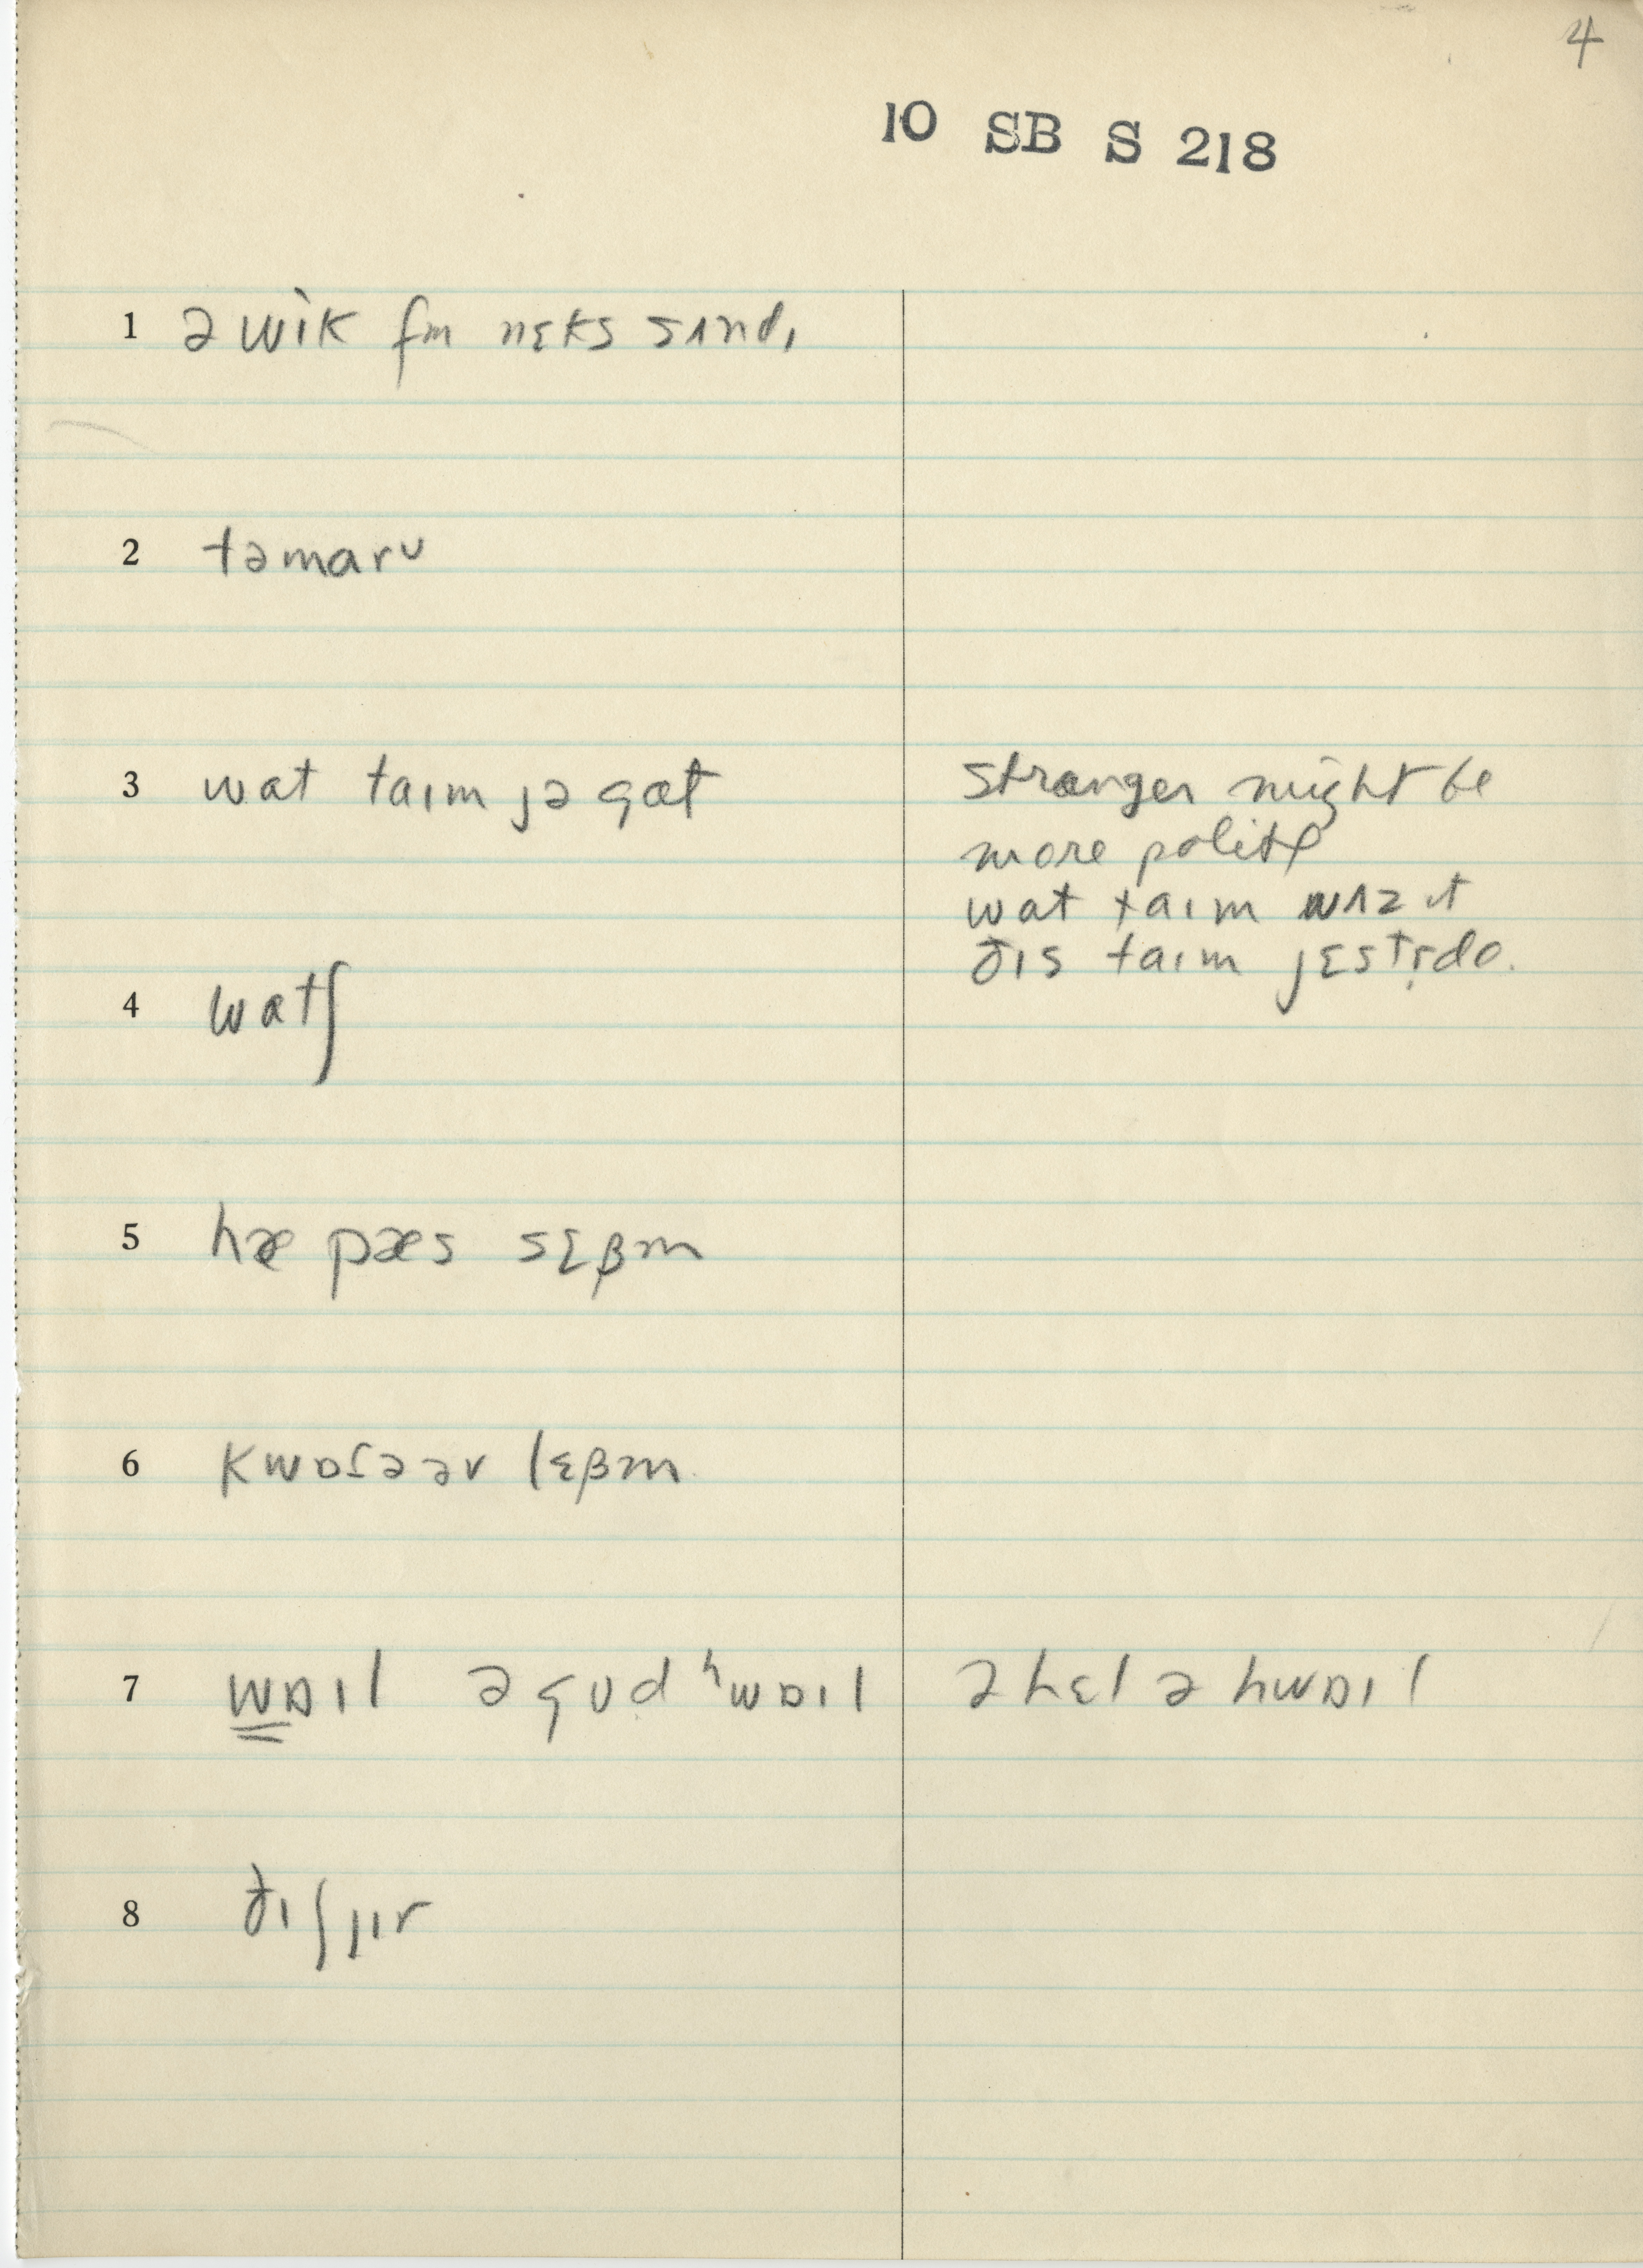 4
10 SB S 218
1 ə wik fm nɛks sʌndɪ
2 təmarᴜ
3 wat taɪm jə gat
stranger might be
more polite
wat taɪm wʌz ɪt
ðɪs taɪm jɛstr̩dɪ.
4 watʃ
5 hæ pæs sɛβm
6 kwɒɾə əv lɛβm
7 wɒɪl ə gʊd ʰwɒɪl ə hɛl ə hwɒɪl
8 ðɪʃ jɪr